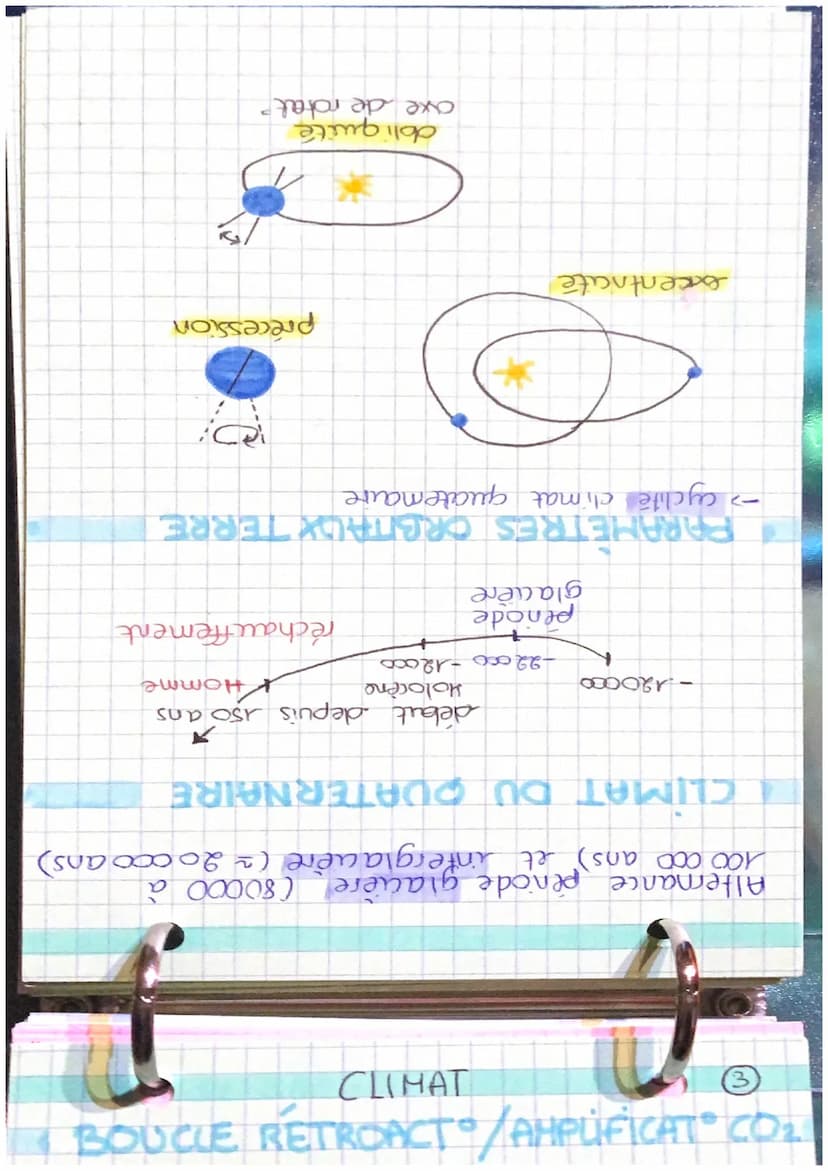 Alternance période glacière (80000 à
100 000 ans) et interglacière (≈ 20000ans)
CLIMAT DU QUATERNAIRE
-120000
-22000
période
glacière
-12000
début depuis 150 ans
Holocène
Homme
réchauffement
PARAMÈTRES ORBITAUX TERRE
-> cyclité climat quaternaire
excentricité
précession
obliquité
axe de rotat°
CLIMAT
3
BOUCLE RÉTROACT°/AMPLIFICAT° CO2